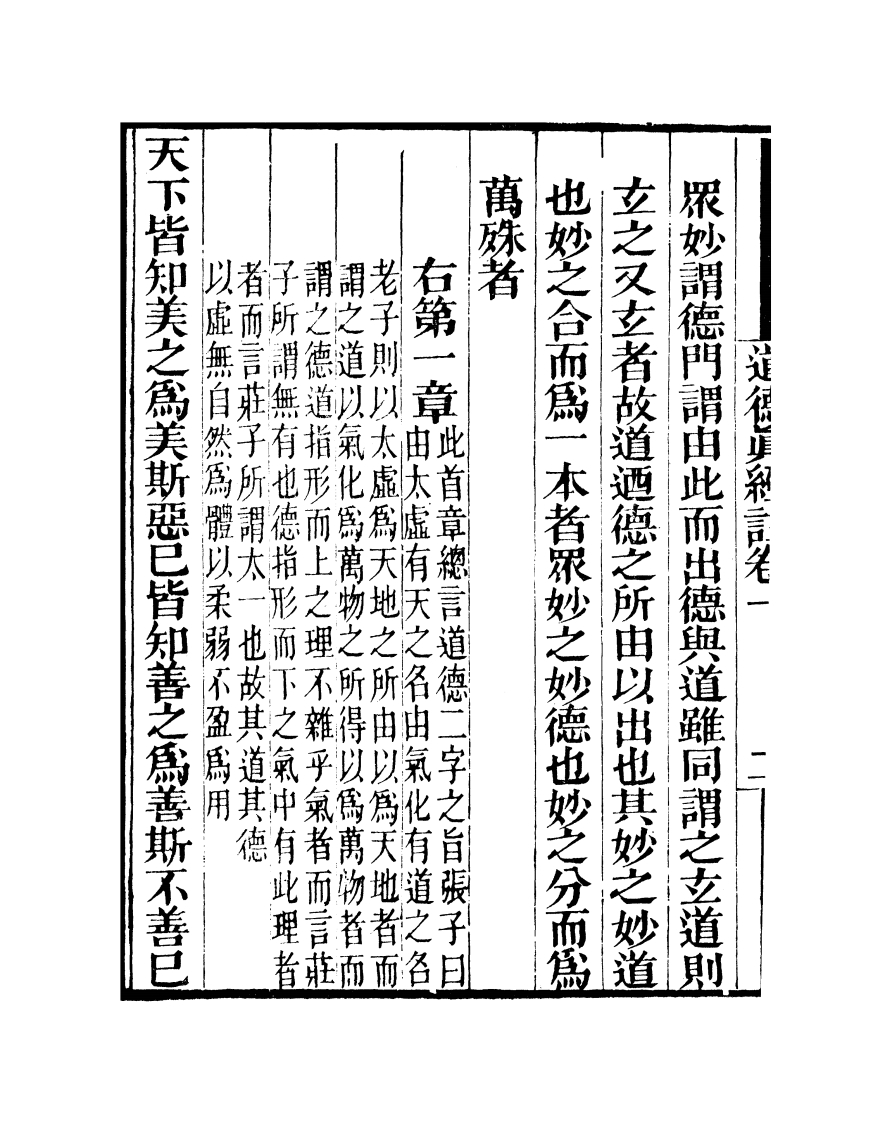 道德眞經註卷一 二
眾妙謂德門謂由此而出德與道雖同謂之玄道則
玄之又玄者故道迺德之所由以出也其妙之妙道
也妙之合而爲一本者眾妙之妙德也妙之分而爲
萬殊者
右第一章
此首章總言道德二字之旨張子曰
由太虛有天之名由氣化有道之各
老子則以太虛爲天地之所由以爲天地者而
謂之道以氣化爲萬物之所得以爲萬物者而
謂之德道指形而上之理不雜乎氣者而言莊
子所謂無有也德指形而下之氣中有此理者
者而言莊子所謂太一也故其道其德
以虛無自然爲體以柔弱不盈爲用
天下皆知美之爲美斯惡巳皆知善之爲善斯不善巳